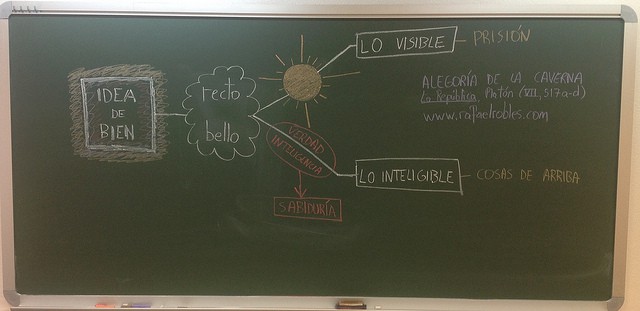 IDEA
DE
BIEN
recto
bello
LO VISIBLE
PRISIÓN
ALEGORÍA DE LA CAVERNA
La República, Platón (VII, 517 a-d)
www.rafaelrobles.com
VERDAD
INTELIGENCIA
LO INTELIGIBLE
COSAS DE ARRIBA
SABIDURÍA